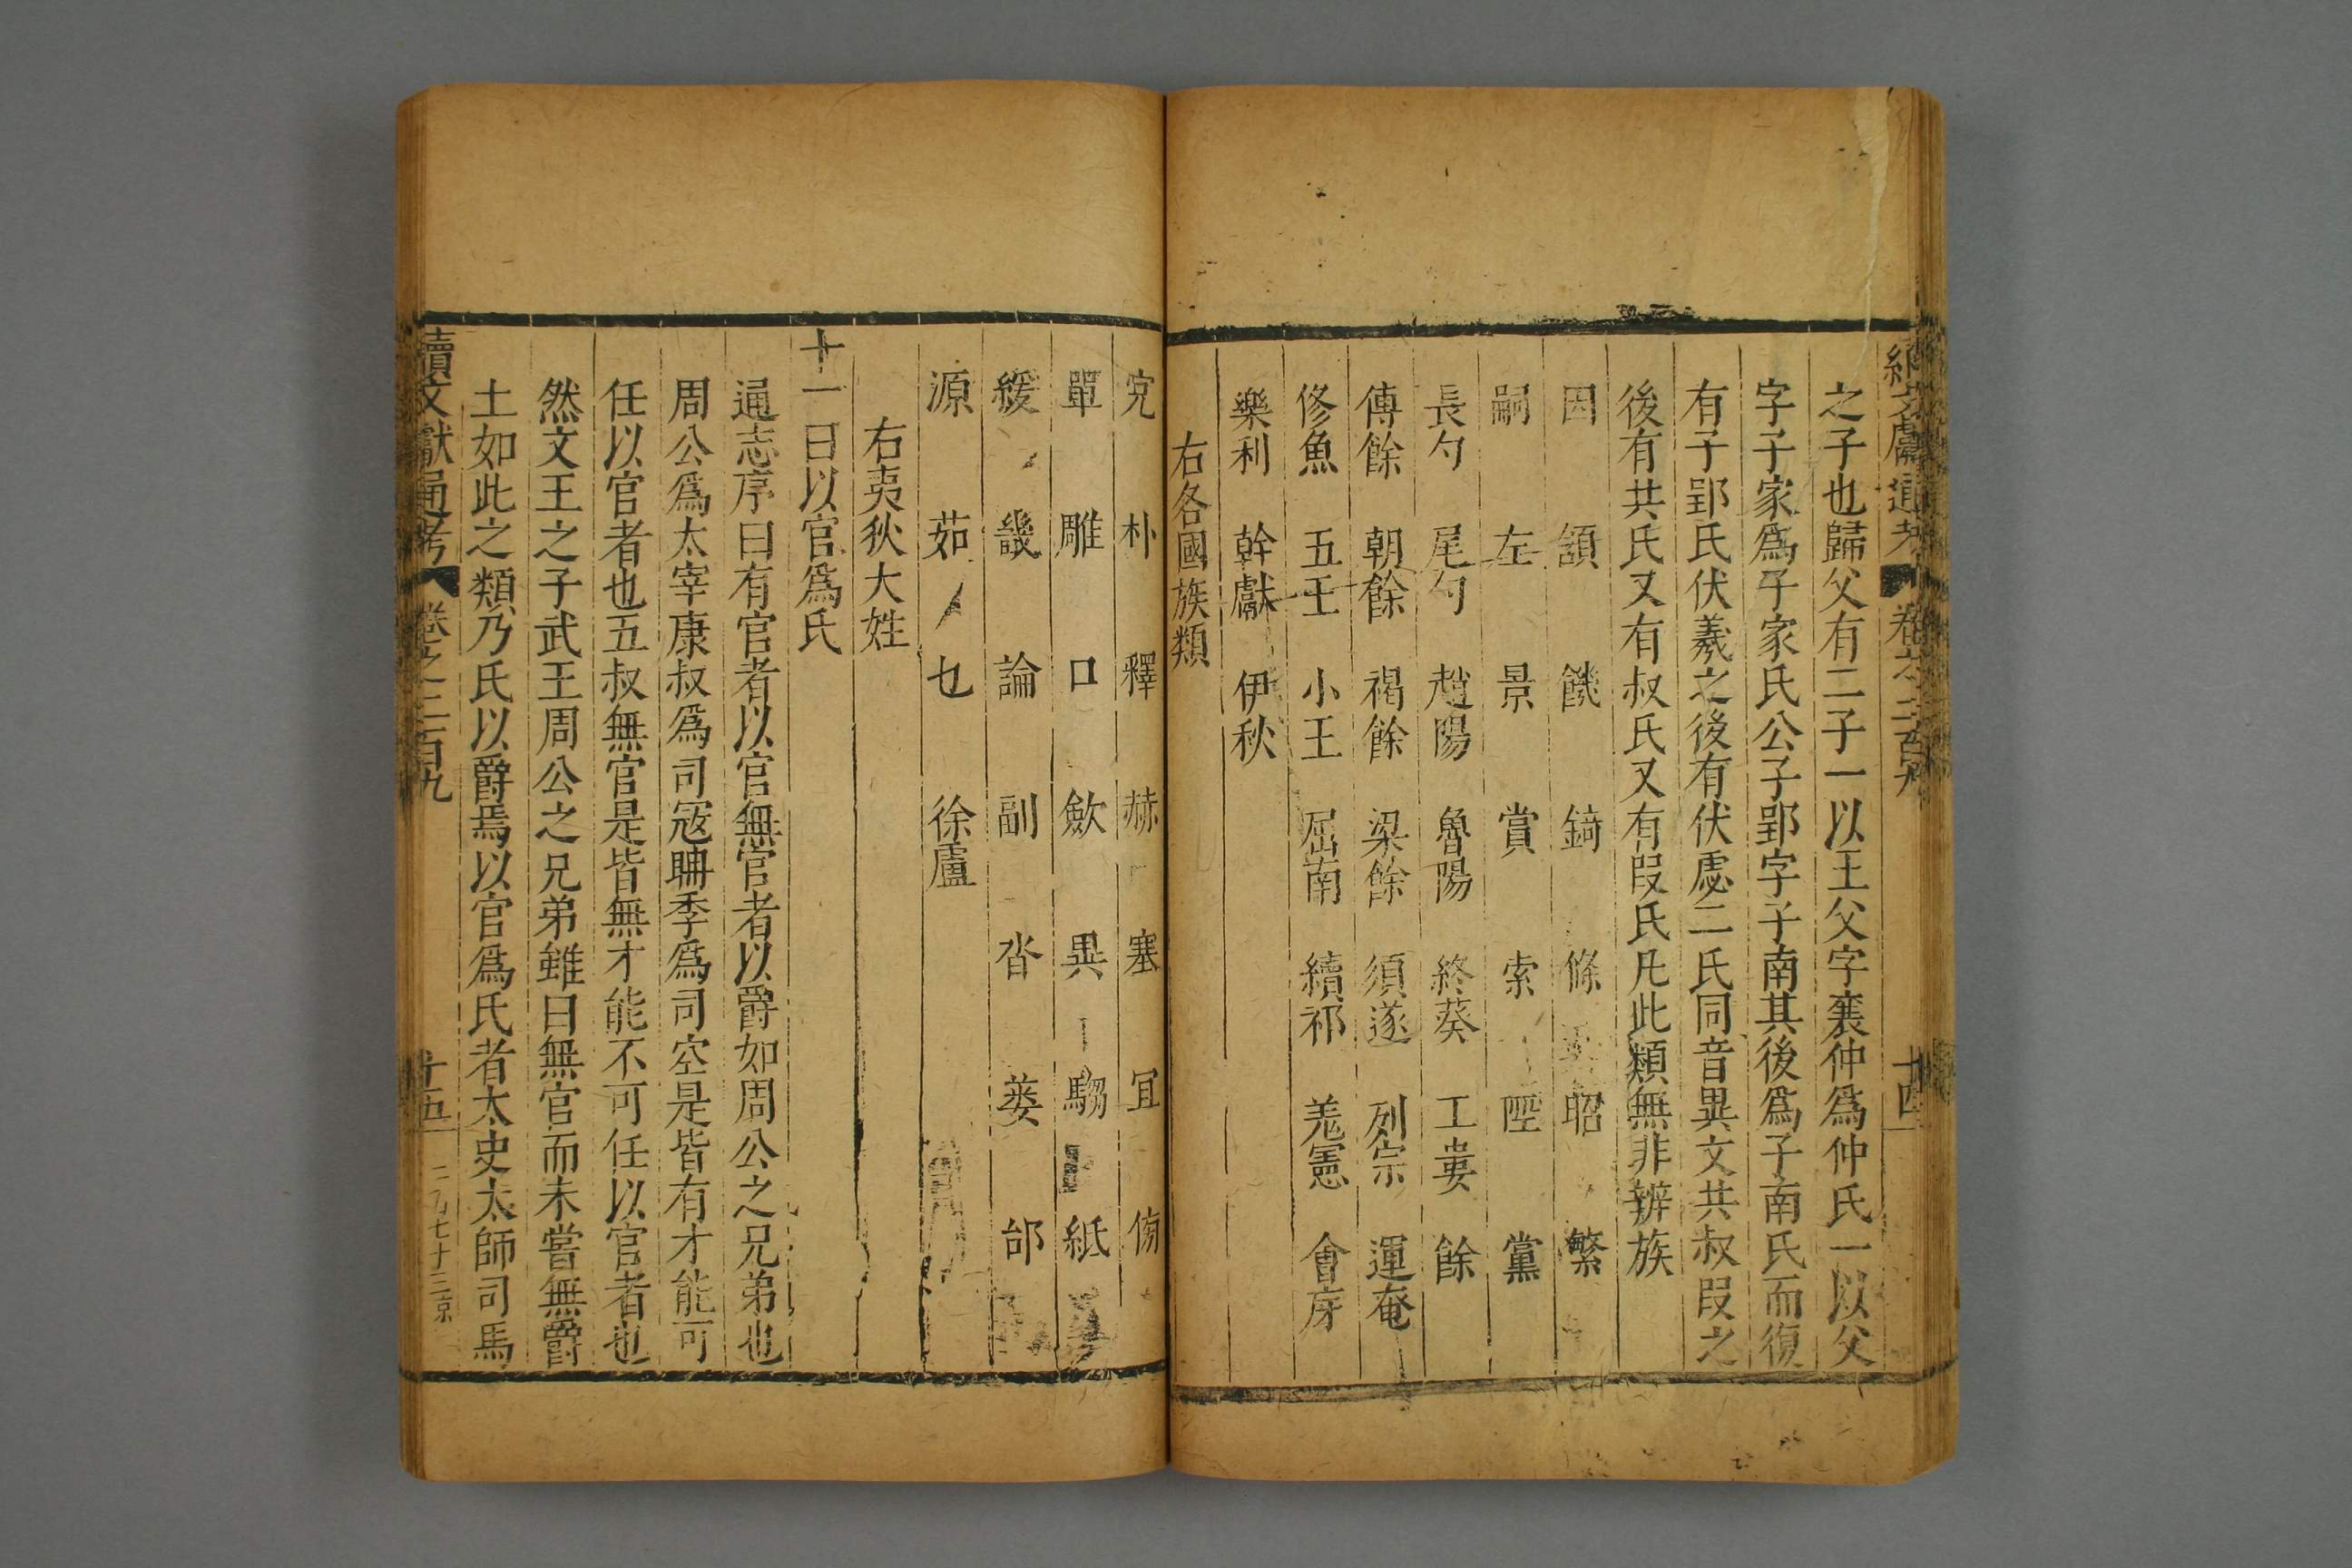 續文獻通考 卷之二百九 十四
之子也歸父有二子一以王父字襄仲爲仲氏一以父
字子家爲子家氏公子郢字子南其後爲子南氏而復
有子郢氏伏羲之後有伏虙二氏同音異文共叔段之
後有共氏又有叔氏又有段氏凡此類無非辨族
因 頟 饑 錡 條 昭 繁
嗣 左 景 賞 索 陘 黨
長勺 尾勺 趙陽 魯陽 終葵 工婁 餘
傅餘 朝餘 褐餘 梁餘 須遂 列宗 運奄
修魚 五王 小王 屈南 續祁 羌憲 會房
樂利 幹獻 伊秋
右各國族類
完 朴 釋 赫 塞 宜 傍
單 雕 口 斂 異 騶 紙
緩 譏 論 副 沓 蒌 邰
源 茹 乜 徐盧
右夷狄大姓
十一曰以官爲氏
通志序曰有官者以官無官者以爵如周公之兄弟也
周公爲太宰康叔爲司寇聃季爲司空是皆有才能可
任以官者也五叔無官是皆無才能不可任以官者也
然文王之子武王周公之兄弟雖曰無官而未嘗無爵
土如此之類乃氏以爵焉以官爲氏者太史太師司馬
續文獻通考 卷之二百九 十五